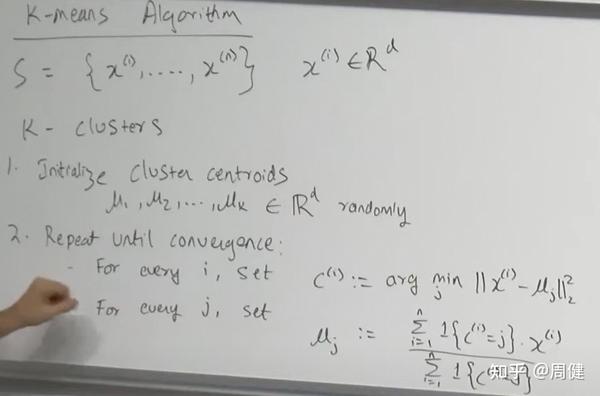 K-means Algorithm
S = { x^(i), ...., x^(n) }   x^(i) ∈ R^d
K - clusters
1. Initialize cluster centroids
μ1, μ2, ..., μk ∈ R^d randomly
2. Repeat until convergence:
- For every i, set   c^(i) := arg min_j ||x^(i) - μj||_2^2
For every j, set
μj := Σ_{i=1}^n 1{c^(i)=j} · x^(i)
Σ_{i=1}^n 1{c
知乎 @周健